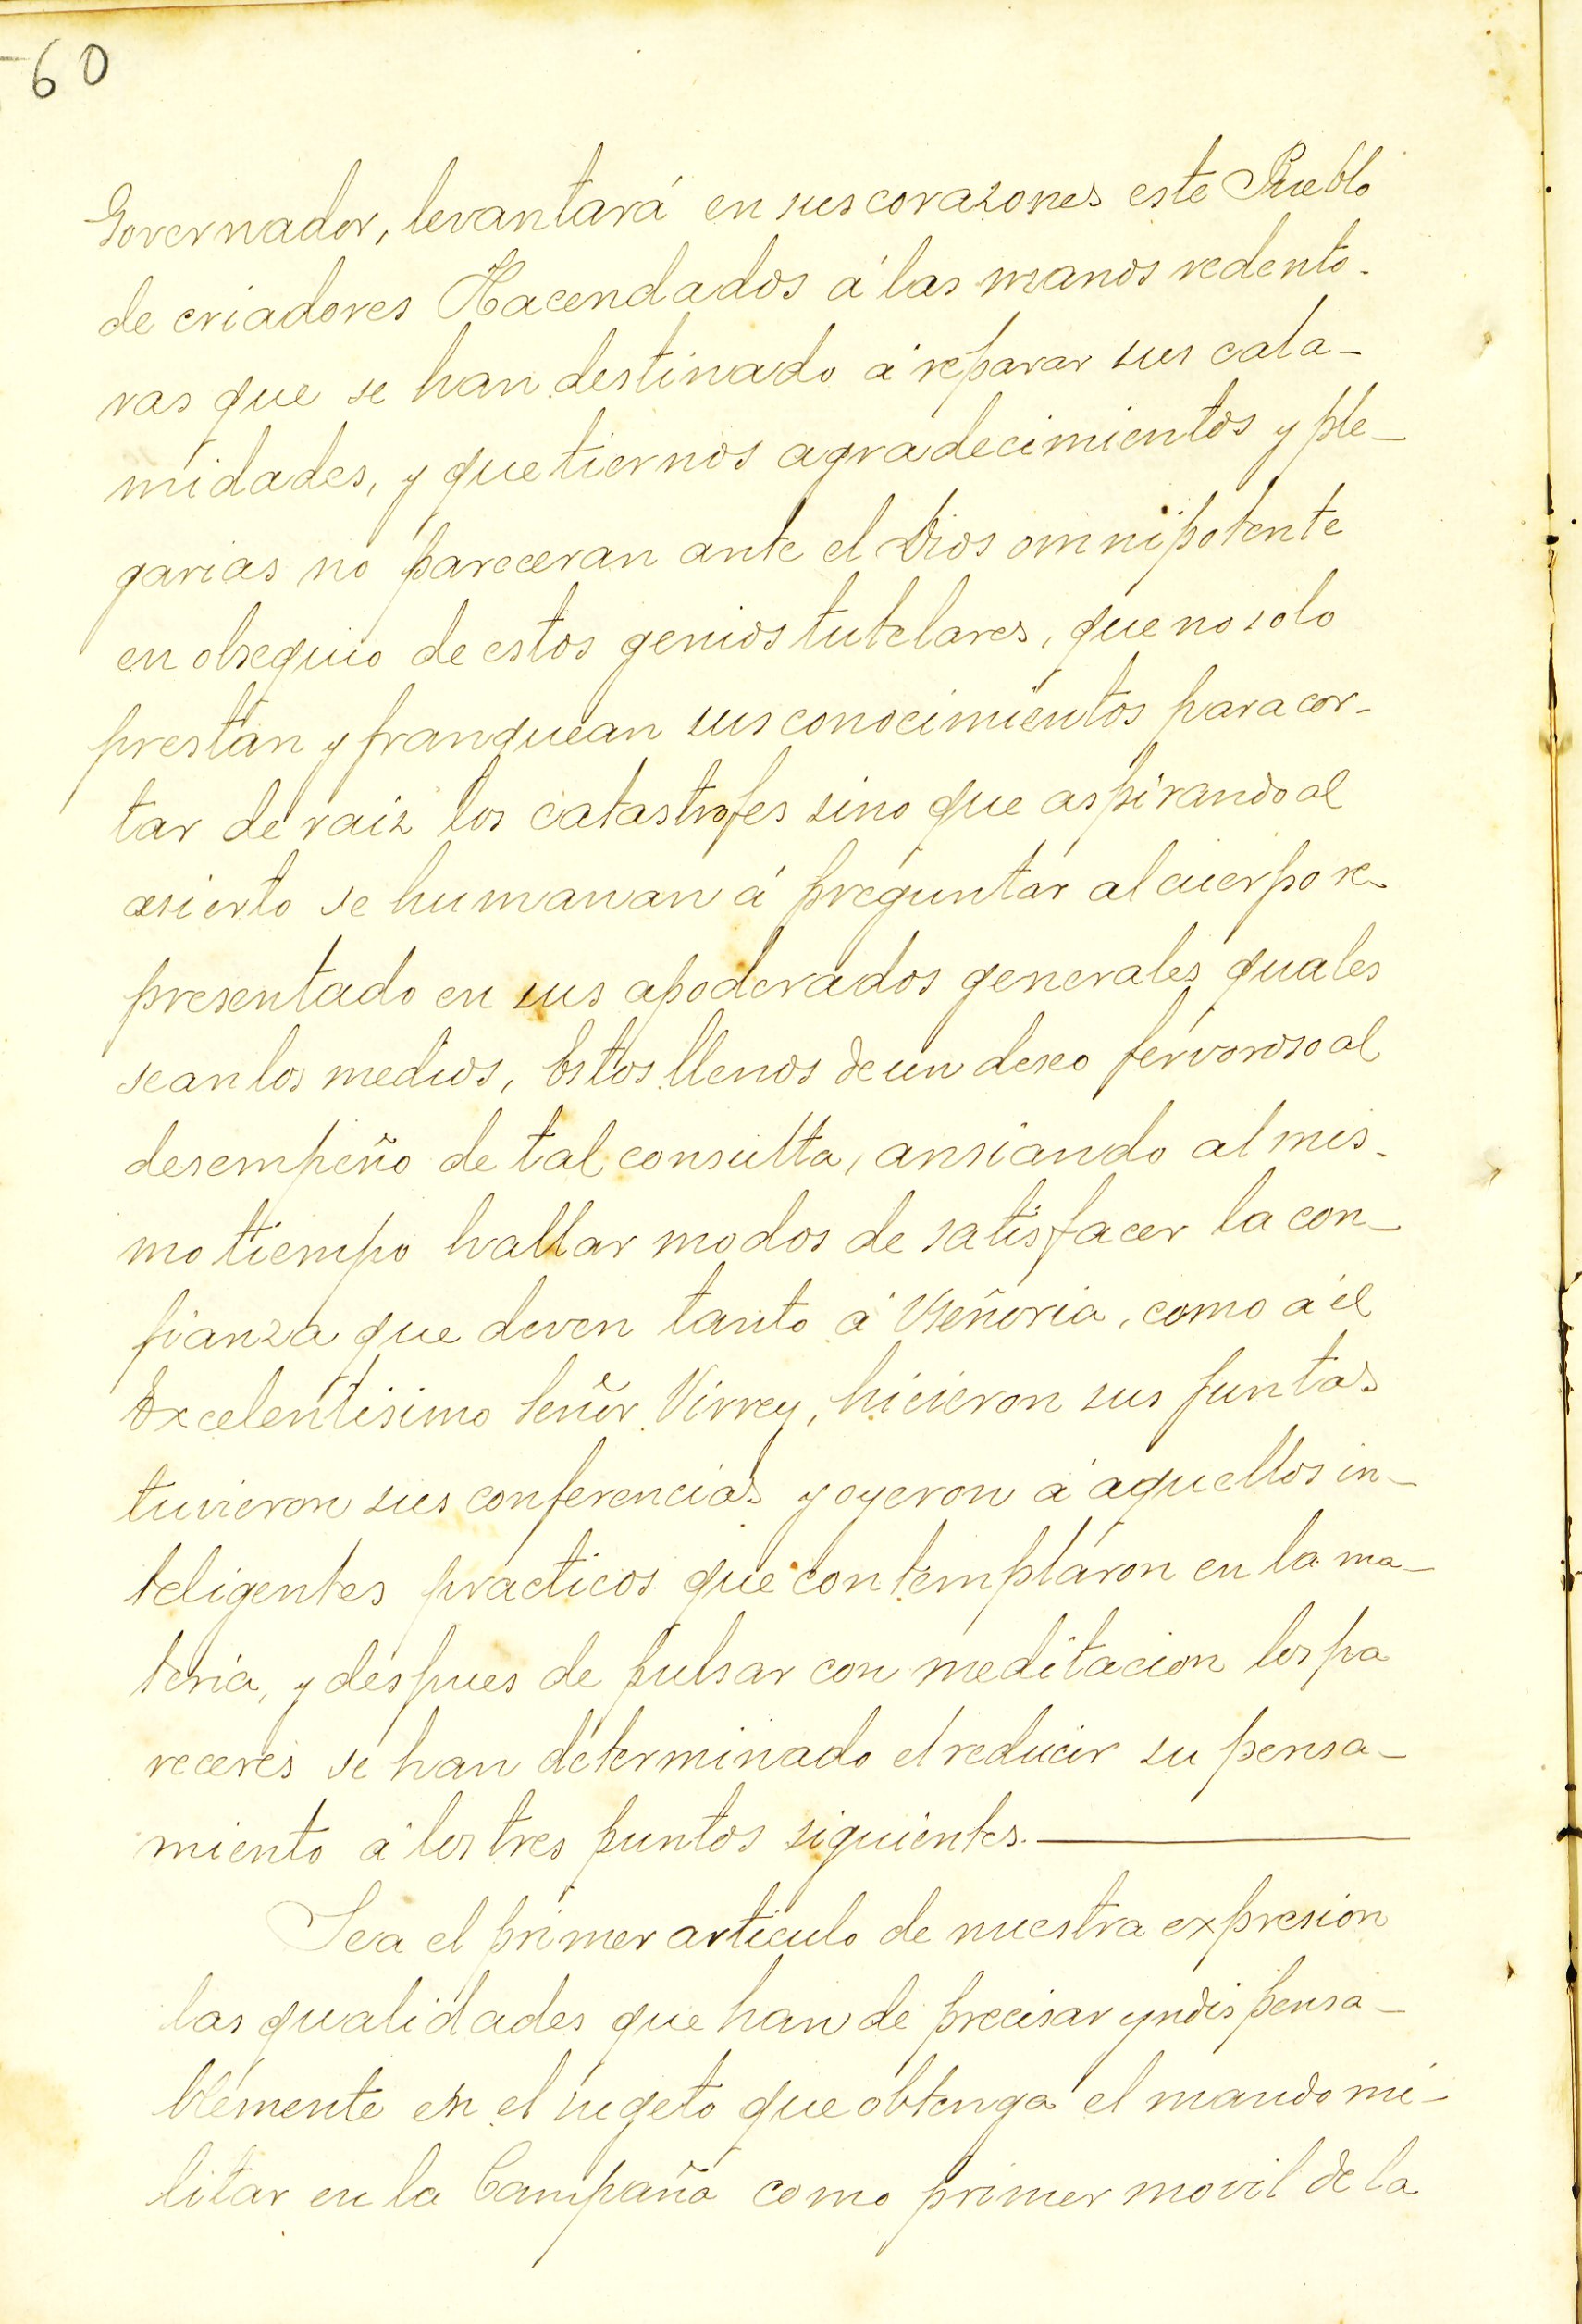 60
Governador, levantará en sus corazones este Pueblo
de criadores Hacendados á las manos redento-
ras que se han destinado á reparar sus cala-
midades, y que tiernos agradecimientos y ple-
garias no pareceran ante el Dios omnipotente
en obsequio de estos genios tutelares, que no solo
prestan y franquean sus conocimientos para cor-
tar de raiz los catastrofes sino que aspirando al
asierto se humanan á preguntar al cuerpo re-
presentado en sus apoderados generales quales
sean los medios, Estos llenos de un deseo fervoroso al
desempeño de tal consulta, ansiando al mis-
mo tiempo hallar modos de satisfacer la con-
fianza que deven tanto á Vseñoria, como á él
Excelentisimo Señor Virrey, hicieron sus juntas
tuvieron sus conferencias y oyeron á aquellos in-
teligentes practicos que contemplaron en la ma-
teria, y despues de pulsar con meditacion los pa
receres se han determinado el reducir su pensa-
miento á los tres puntos siguientes.
Sea el primer articulo de nuestra expresion
las qualidades que han de precisar yndispensa-
blemente en el sugeto que obtenga el mando mi-
litar en la Campaña como primer movil de la